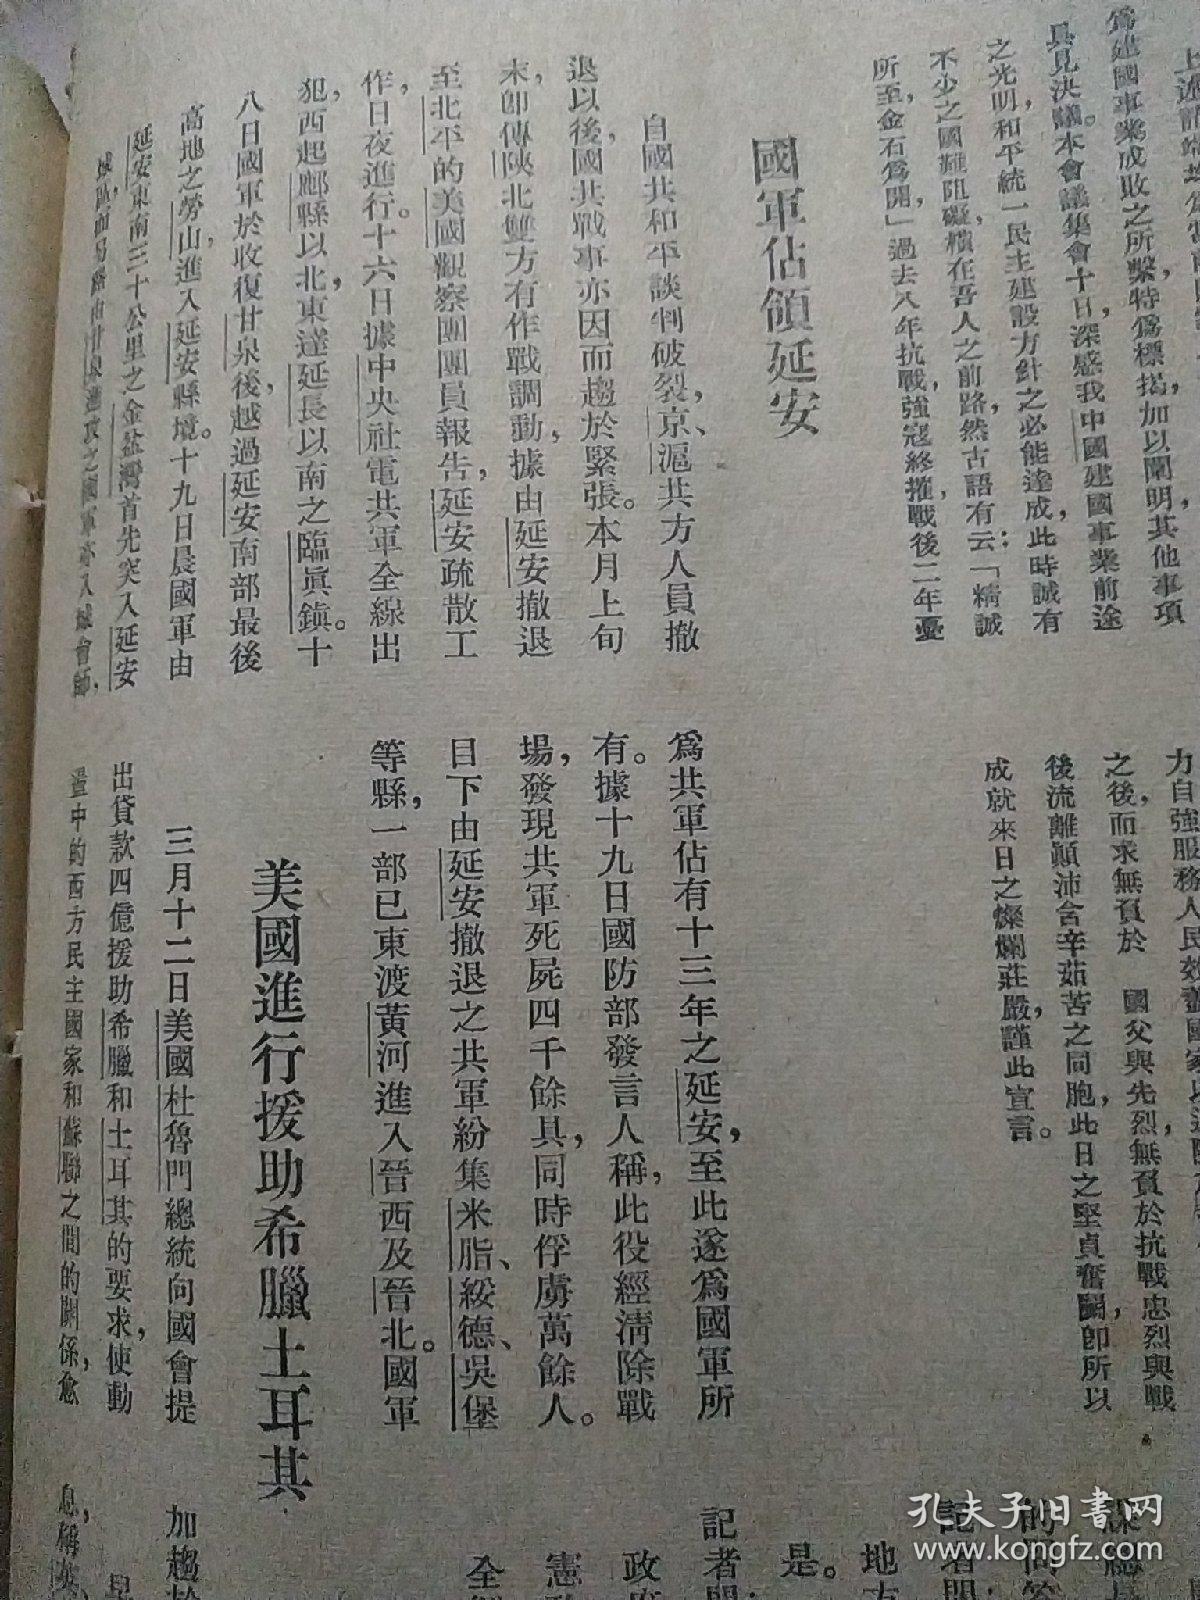 爲建國事業成敗之所繫,特爲標揭,加以闡明,其他事項
具見決議。本會議集會十日,深感我中國建國事業前途
之光明,和平統一民主建設方針之必能達成,此時誠有
不少之國難阻礙橫在吾人之前路,然古語有云:「精誠
所至,金石爲開」過去八年抗戰,強寇終摧,戰後二年憂
國軍佔領延安
自國共和平談判破裂,京、滬共方人員撤
退以後,國共戰事亦因而趨於緊張。本月上旬
末,卽傳陝北雙方有作戰調動,據由延安撤退
至北平的美國觀察團團員報告,延安疏散工
作,日夜進行。十六日據中央社電共軍全線出
犯,西起鄜縣以北,東達延長以南之臨眞鎮。十
八日國軍於收復甘泉後,越過延安南部最後
高地之勞山,進入延安縣境。十九日晨國軍由
延安東南三十公里之金盆灣首先突入延安
力自強服務人民效
之後,而求無負於 國父與先烈無負於抗戰忠烈與戰
後流離顚沛含辛茹苦之同胞,此日之堅貞奮鬭,卽所以
成就來日之燦爛莊嚴,謹此宣言。
爲共軍佔有十三年之延安,至此遂爲國軍所
有。據十九日國防部發言人稱,此役經清除戰
場,發現共軍死屍四千餘具,同時俘虜萬餘人。
目下由延安撤退之共軍紛集米脂、綏德、吳堡
等縣,一部已東渡黃河進入晉西及晉北。國軍
美國進行援助希臘土耳其
三月十二日美國杜魯門總統向國會提
出貸款四億援助希臘和土耳其的要求,使動
盪中的西方民主國家和蘇聯之間的關係,愈
的問答
記者問
地方
是。
記者問
政府
憲
全
加趨於
息,稱
孔夫子旧书网
www.kongfz.com